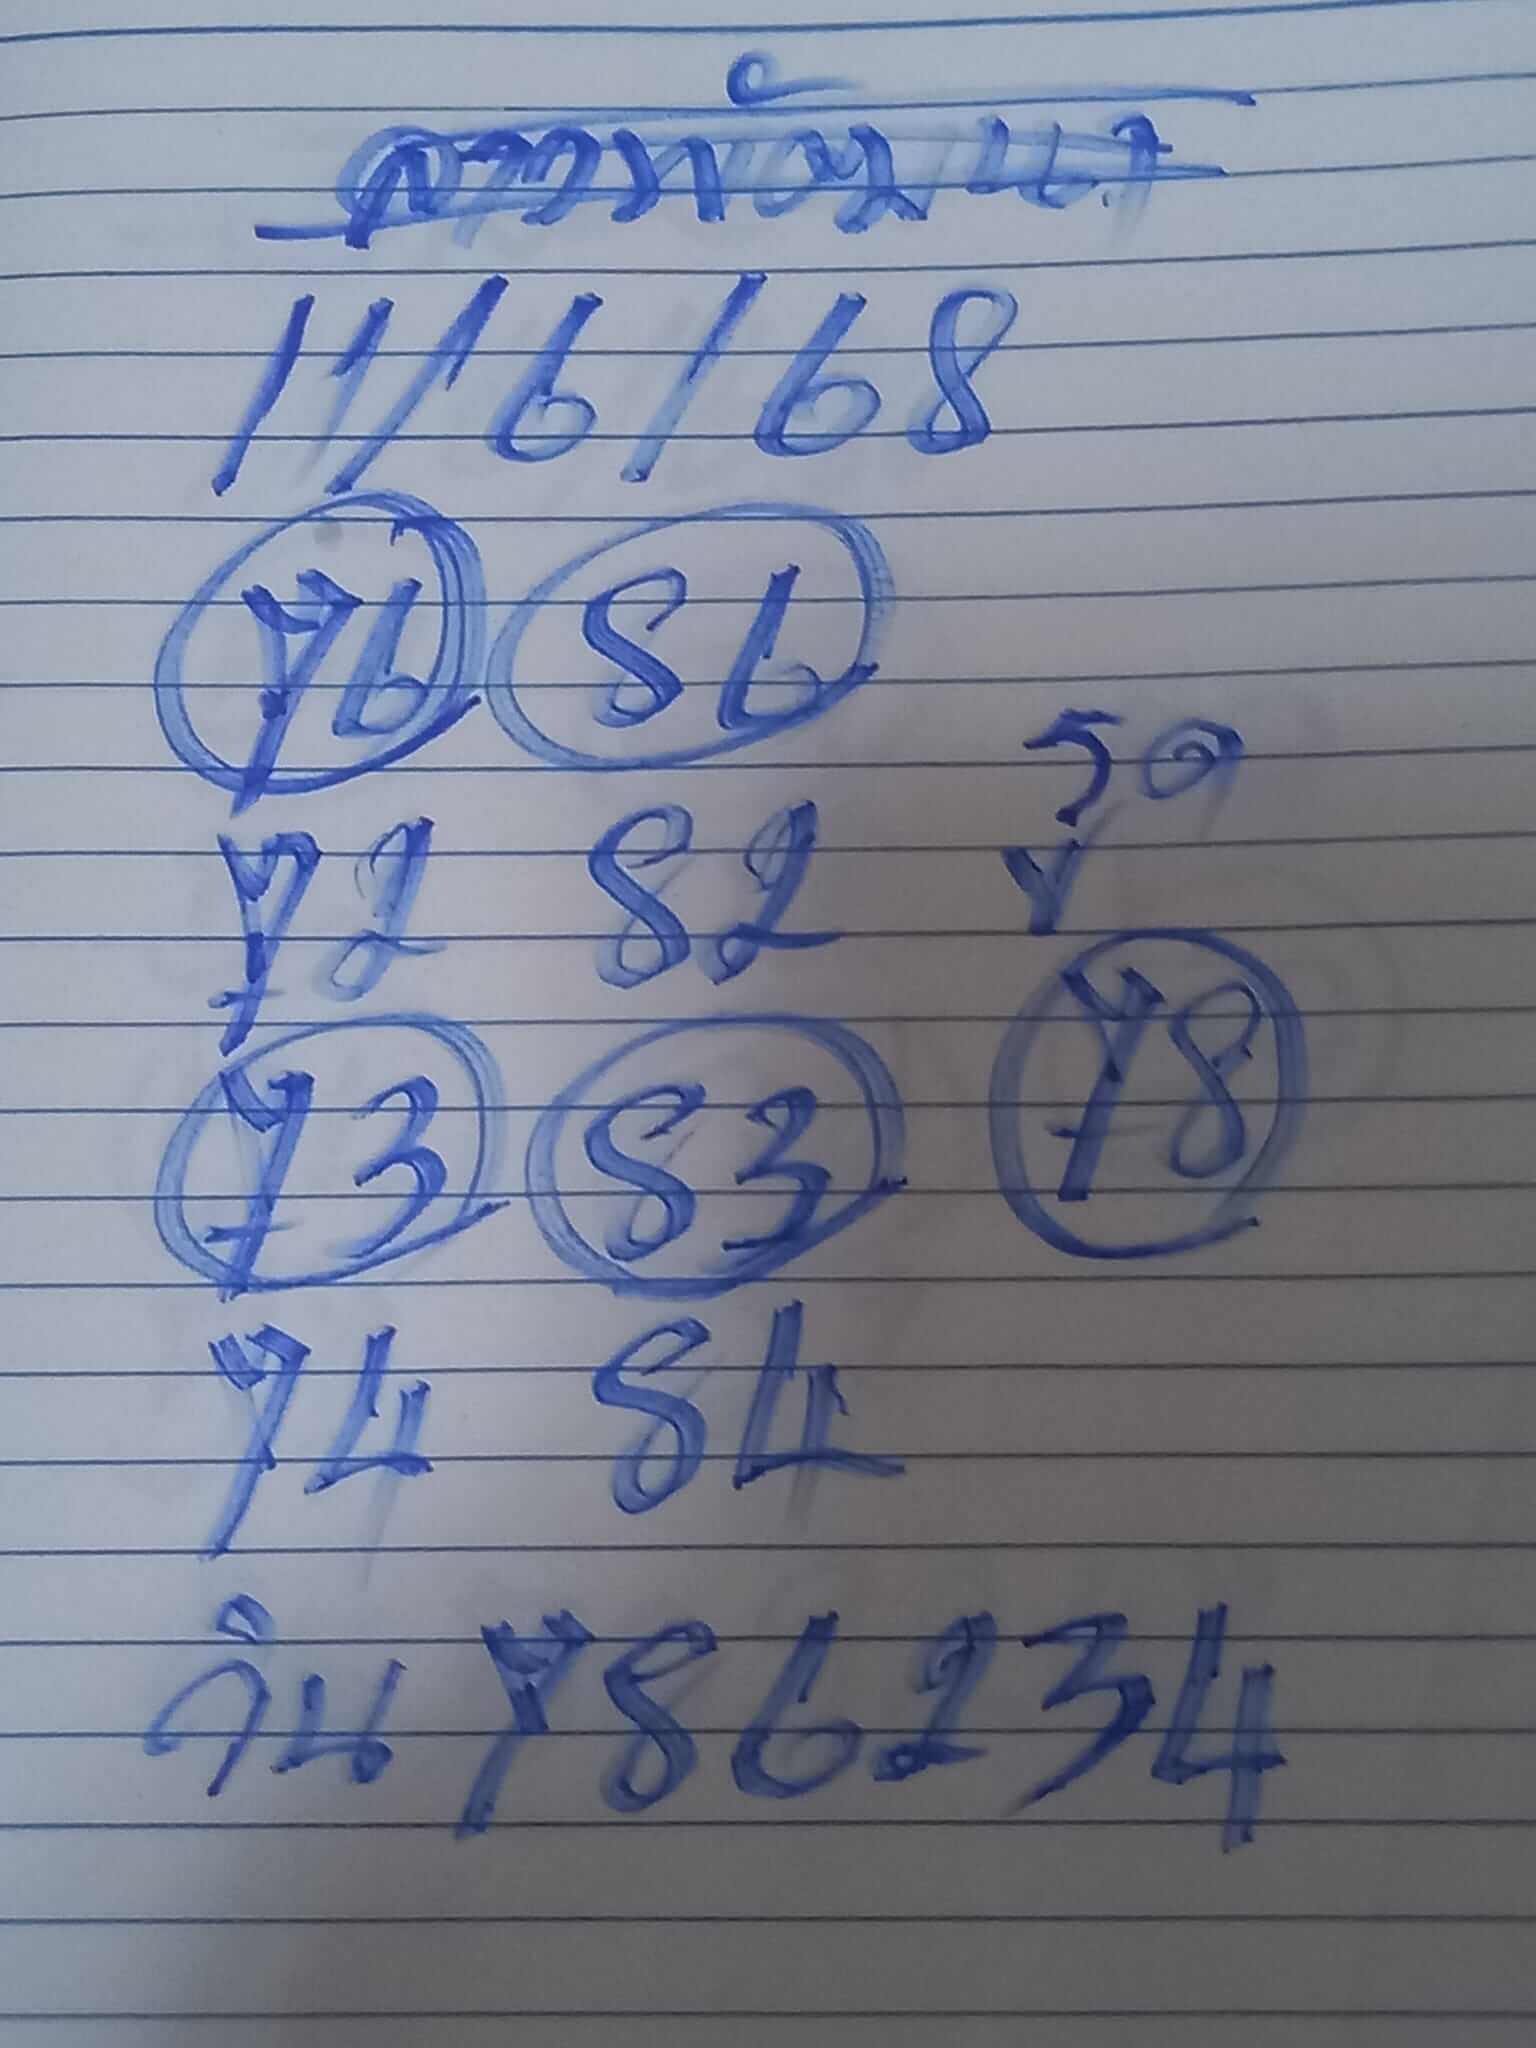 11/6/68
76 86
72 82
รูด
73 83 78
74 84
วิน 786234